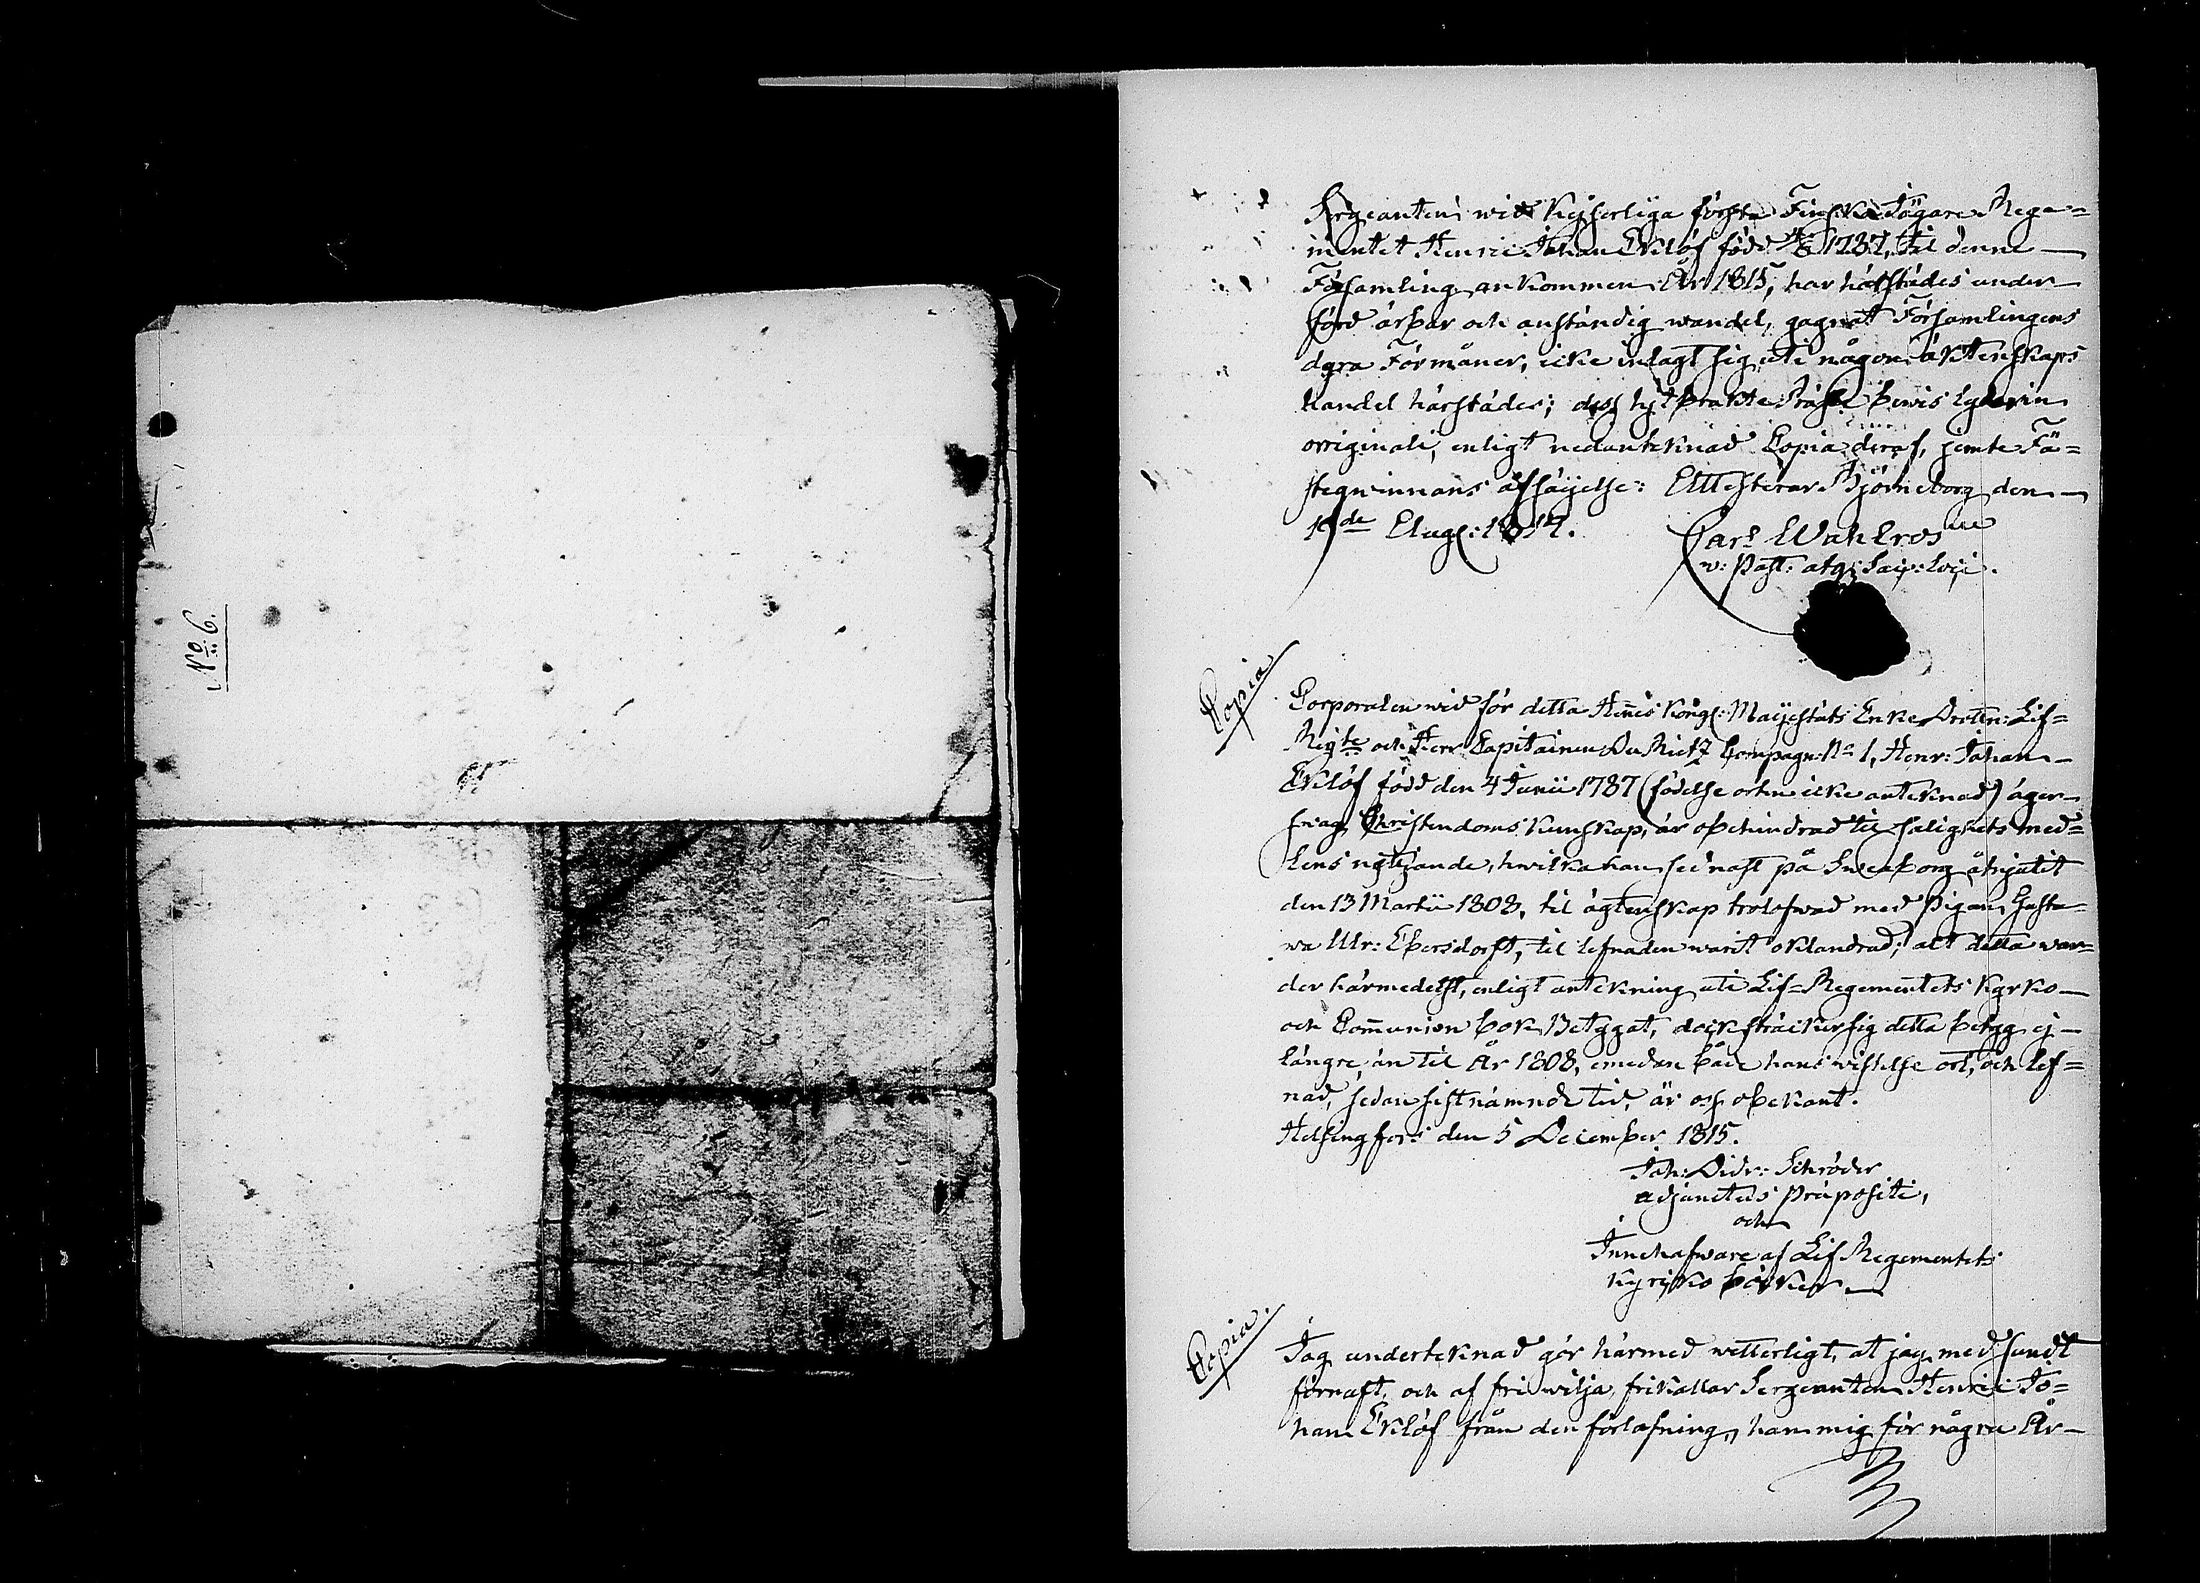 No: 6.
Sergeanten wid Kejserliga första Finska Jägare Rege=
mentet Henric Johan Eklöf född 4/6 1787, til denne
Församling ankommen År 1815, har härstädes under
förd ärbar och anständig wandel, gagnat Församlingens
dyra Förmåner, icke inlagt sig uti någon äktenskaps
handel härstädes; dess hitbrakte Präste bewis lyder in
originali, enligt nedanteknad Copia deraf, jemte Fä=
steqwinnans afsäyelse: Attesterar Björneborg den
1de Aug: 1817.
Carl Wahlroos
w: Past: atq: Sacp: loci.
Copia
Corporalen wid för detta Hennes Kongl: Maijestäts Enke Drottn: Lif=
Regte och Herr Capitainen Du Rietz Compagn: No 1, Henr: Johan
Eklöf född den 4 Junii 1787 (födelse orten icke anteknad) äger
swag Christendoms kunskap, är obehindrad til salighets med=
lens nyttjande, hwilka han sednast på Sweaborg åtnjutit
den 13 Martii 1808, til ägtenskap trolofwad med Pigan Gusta=
wa Ulr: Ebersdorft, til lefnaden warit oklandrad; alt detta war=
der härmedelst, enligt antekning uti Lif=Regementets Kyrko
och Communion bok Betygat, dock sträcker sig detta betyg ej
längre, än til År 1808, emedan både hans wistelse ort, och lef=
nad, sedan sistnämnde tid, är oss obekant.
Helsingfors den 5 December 1815.
Joh: Didr: Schröder
adjunctus Præpositi,
och
Innehafware af Lif Regementets
Kyrko böcker
Copia.
Jag underteknad gör härmed witterligt, at jag med sundt
förnuft, och af fri wilja, frikallar Sergeanten Henric Jo=
han Eklöf från den förlofning, han mig för några År